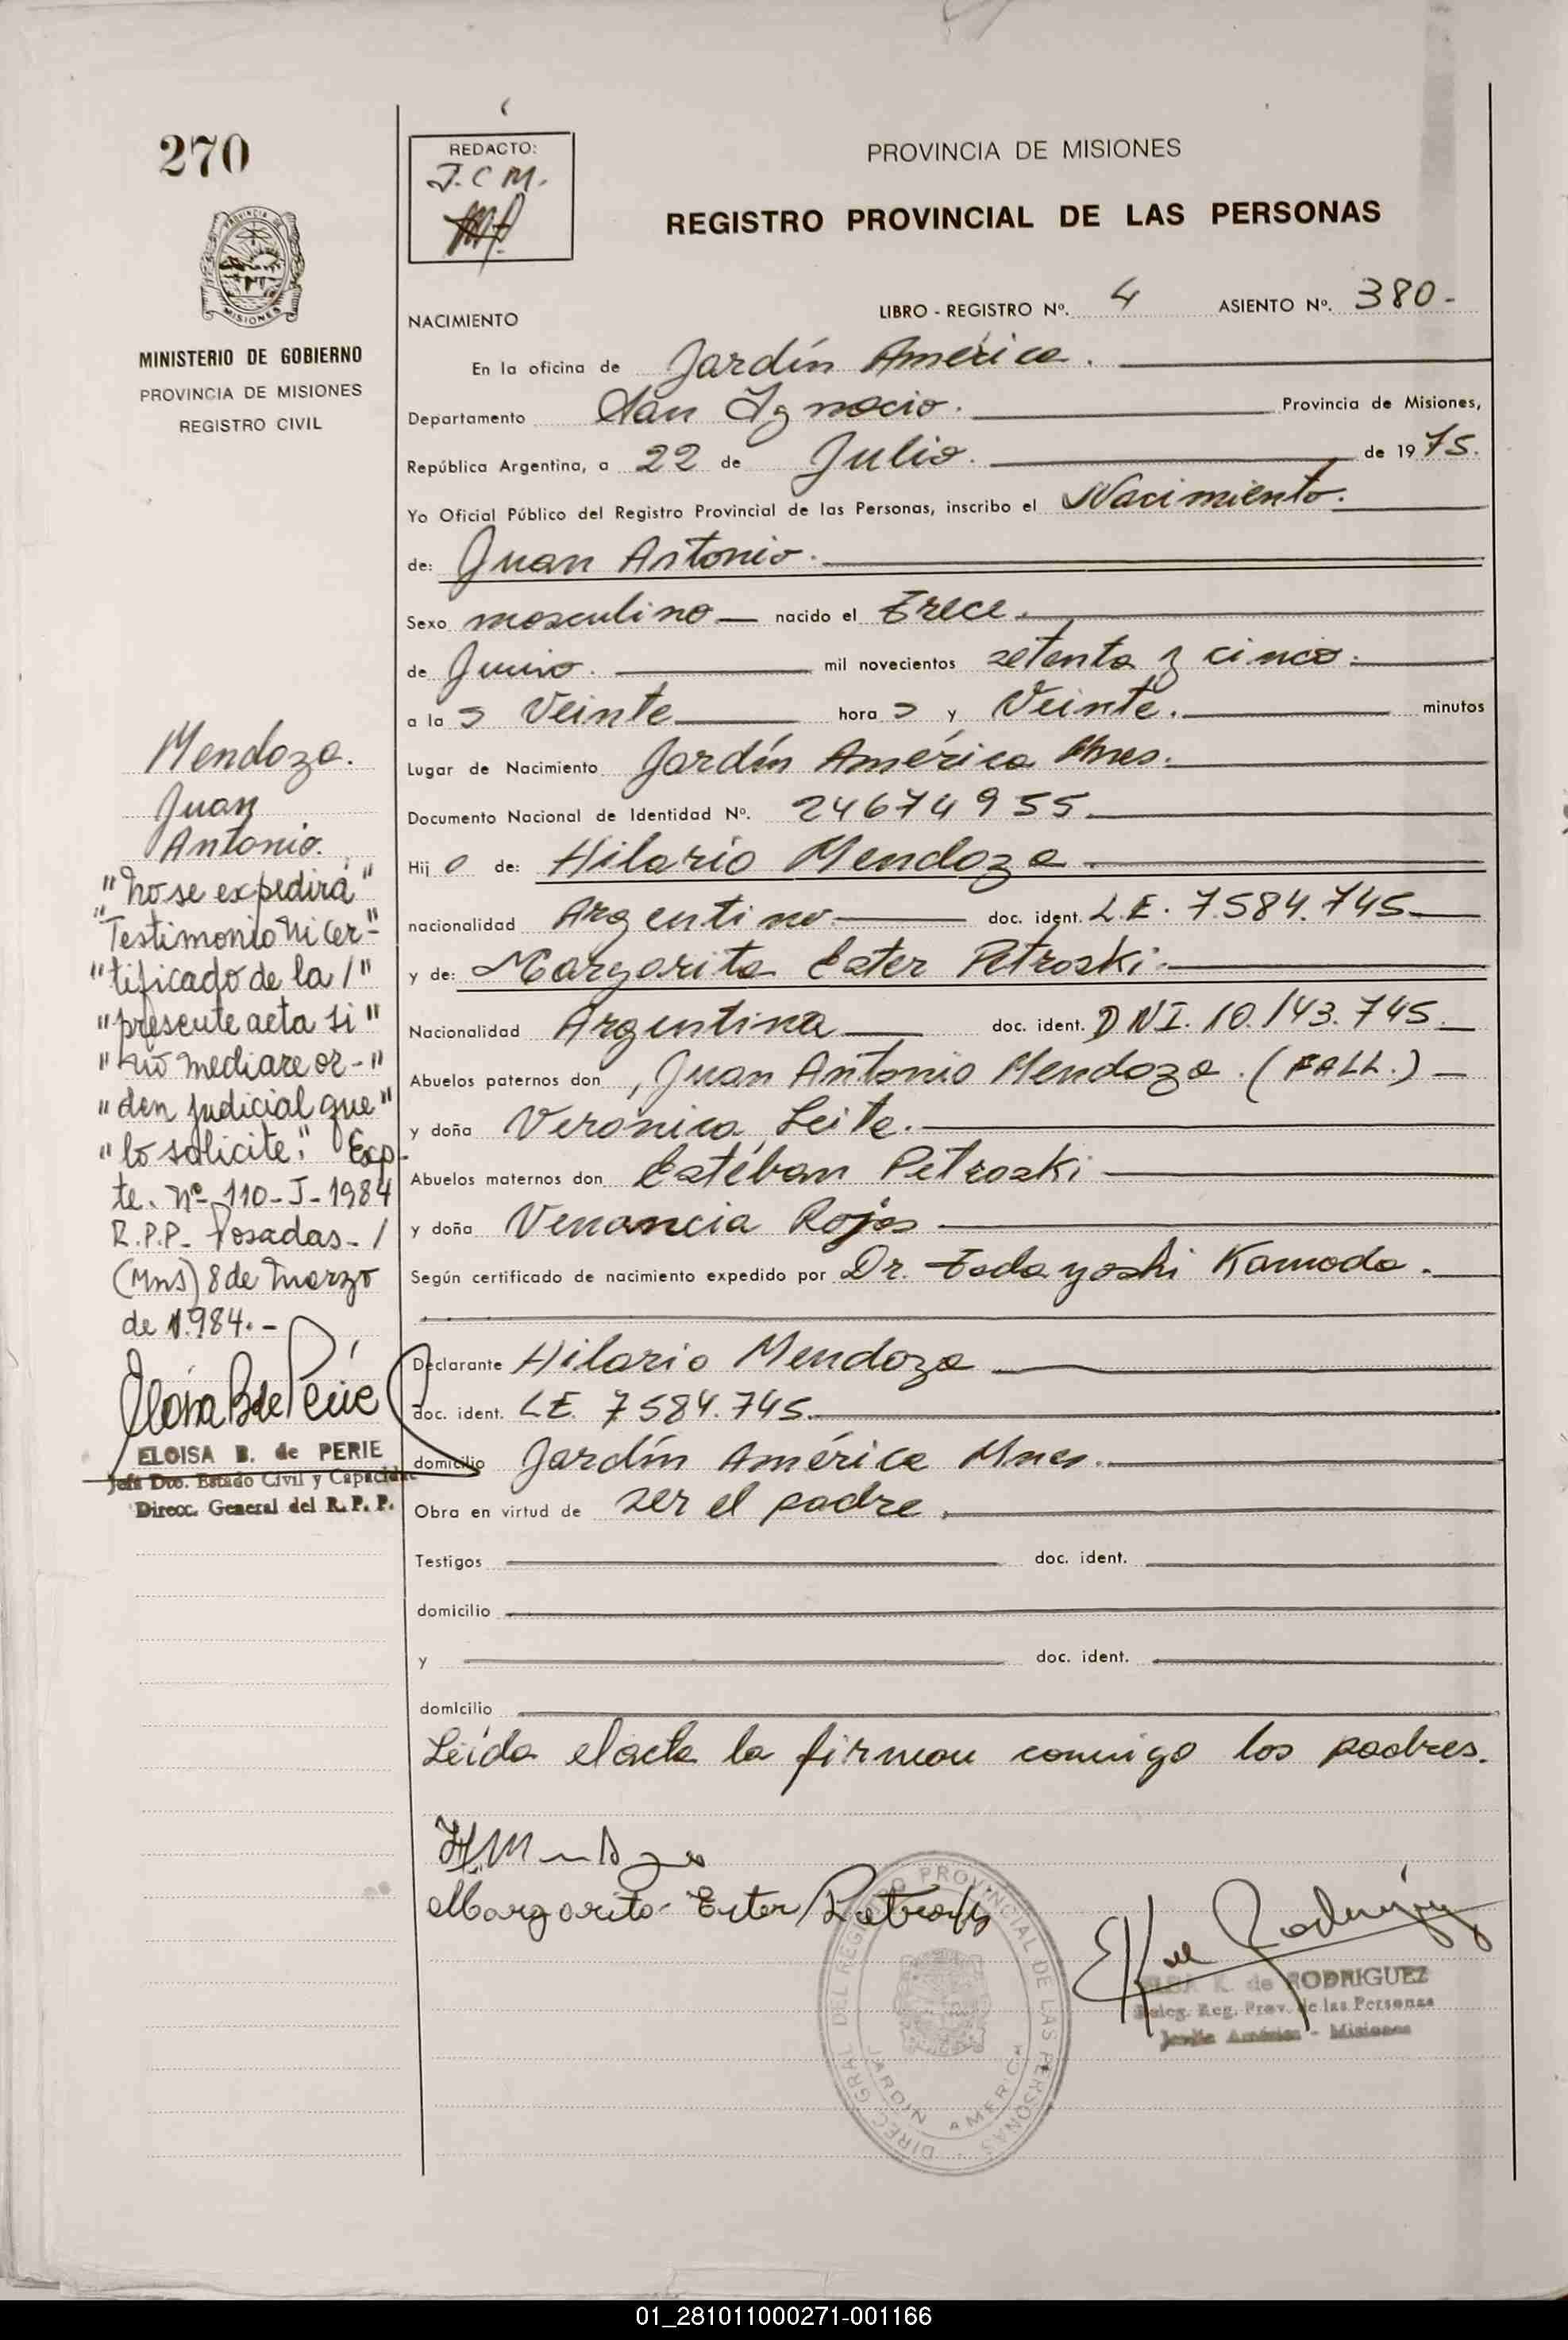 270
MINISTERIO DE GOBIERNO
PROVINCIA DE MISIONES
REGISTRO CIVIL
REDACTO:
J.C M.
PROVINCIA DE MISIONES
REGISTRO PROVINCIAL DE LAS PERSONAS
NACIMIENTO
LIBRO - REGISTRO Nº. 4 ASIENTO Nº. 380-
En la oficina de Jardín América.
Departamento San Ignacio. Provincia de Misiones,
República Argentina, a 22 de Julio. de 1975.
Yo Oficial Público del Registro Provincial de las Personas, inscribo el Nacimiento.
de: Juan Antonio.
Sexo masculino nacido el trece.
de Junio. mil novecientos setenta y cinco.
a las Veinte horas y Veinte. minutos
Lugar de Nacimiento Jardín América Mnes.
Documento Nacional de Identidad Nº. 24674955
Hijo de: Hilario Mendoza.
nacionalidad Argentino doc. ident. L.E. 7.584.745
y de: Margarita Ester Petroski.
Nacionalidad Argentina doc. ident. DNI. 10.143.745.
Abuelos paternos don, Juan Antonio Mendoza. (FALL.)
y doña Verónica Leite.
Abuelos maternos don Estéban Petroski
y doña Venancia Rojas
Según certificado de nacimiento expedido por Dr. Tadayoshi Kamada.
Declarante Hilario Mendoza
doc. ident. LE. 7584.745.
domicilio Jardín América Mnes.
Obra en virtud de ser el padre.
Testigos doc. ident.
domicilio
y doc. ident.
domicilio
Leída el acta la firman conmigo los padres.
Margarita Ester Petroski
DIREC GRAL DEL REGISTRO PROVINCIAL DE LAS PERSONAS
JARDIN AMERICA
ELSA K. de RODRIGUEZ
Deleg. Reg. Prov. de las Personas
Jardín América - Misiones
Mendoza.
Juan
Antonio.
"No se expedirá"
"Testimonio ni cer-"
"tificado de la /"
"presente acta si"
"no mediare or-"
"den judicial que"
"lo solicite." Exp-
te. Nº 110-J-1984
R.P.P. Posadas- /
(Mns) 8 de Marzo
de 1.984.-
Eloisa B de Perié
ELOISA B. de PERIE
Jefa Dto. Estado Civil y Capacidad
Direcc. General del R. P. P.
MISIONES
01_281011000271-001166